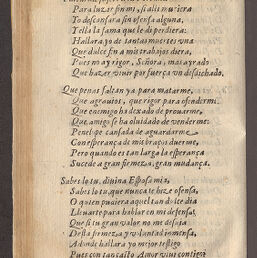 Para luzer fin mi, si alli muriera
Yo descansara sin ofensa alguna,
Y ella la fama que le di perdiera:
Hallara yo de tantas muertes una
Que dulce fin a mis trabajos diera,
Pues no ay rigor, Señora, mas ayrado
Que hazer viuir por fuerça vn desdichado.
Que penas faltan ya para matarme,
Que agrauios, que rigor para ofenderme
Que enemigo ha dexado de prouarme,
Que amigo se ha oluidado de venderme:
Penelope cansada de aguardarme
Con esperança de mis braços duerme,
Pero quando es tan larga la esperança
Sucede a gran firmeza, gran mudança.
Sabes lo tu, diuina Esposa mia,
Sabes lo tu, que nunca te hize ofensa,
O quien pudiera aquel tan dolce dia
Lleuarte para hablar en mi defensa,
Que si tu gran valor no me desfia
Desta firmeza, y voluntad inmensa,
Adonde hallara yo mejor testigo
Pues con tan casto Amor viui contigo